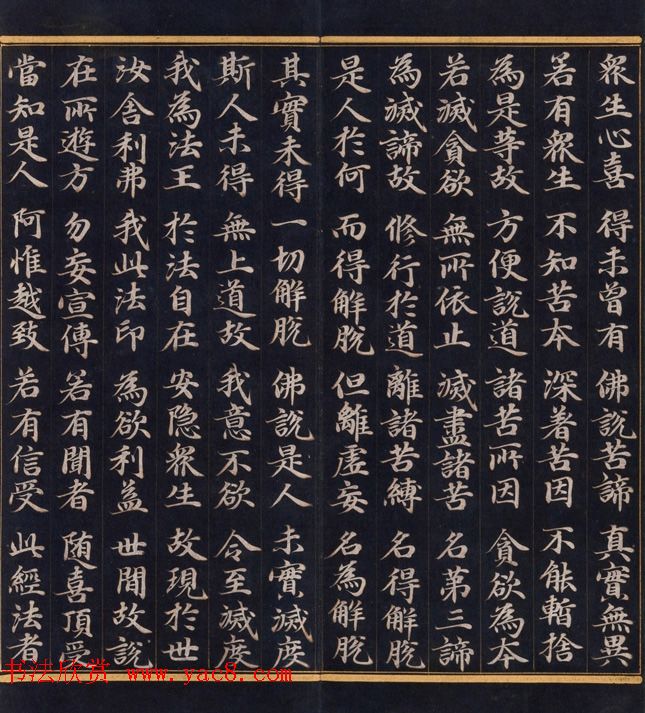 眾生心喜 得未曾有 佛說苦諦 真實無異
若有眾生 不知苦本 深著苦因 不能暫捨
為是等故 方便說道 諸苦所因 貪欲為本
若滅貪欲 無所依止 滅盡諸苦 名第三諦
為滅諦故 修行於道 離諸苦縛 名得解脫
是人於何 而得解脫 但離虛妄 名為解脫
其實未得 一切解脫 佛說是人 未實滅度
斯人未得 無上道故 我意不欲 令至滅度
我為法王 於法自在 安隱眾生 故現於世
汝舍利弗 我此法印 為欲利益 世間故說
在所遊方 勿妄宣傳 若有聞者 随喜頂受
當知是人 阿惟越致 若有信受 此經法者
书法欣赏 www.yac8.com